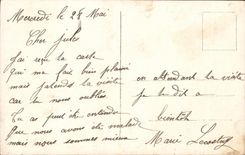 Mercredi le 28 Mai
Cher Jules
J'ai reçu la carte
Qui m'a fait bien plaisir
mais j'attends la visite
car tu nous oublie
Tu as peut être entendu
Que nous avons été malade
mais nous sommes mieux
en attendant la visite
je te dit a
bientôt
Marie